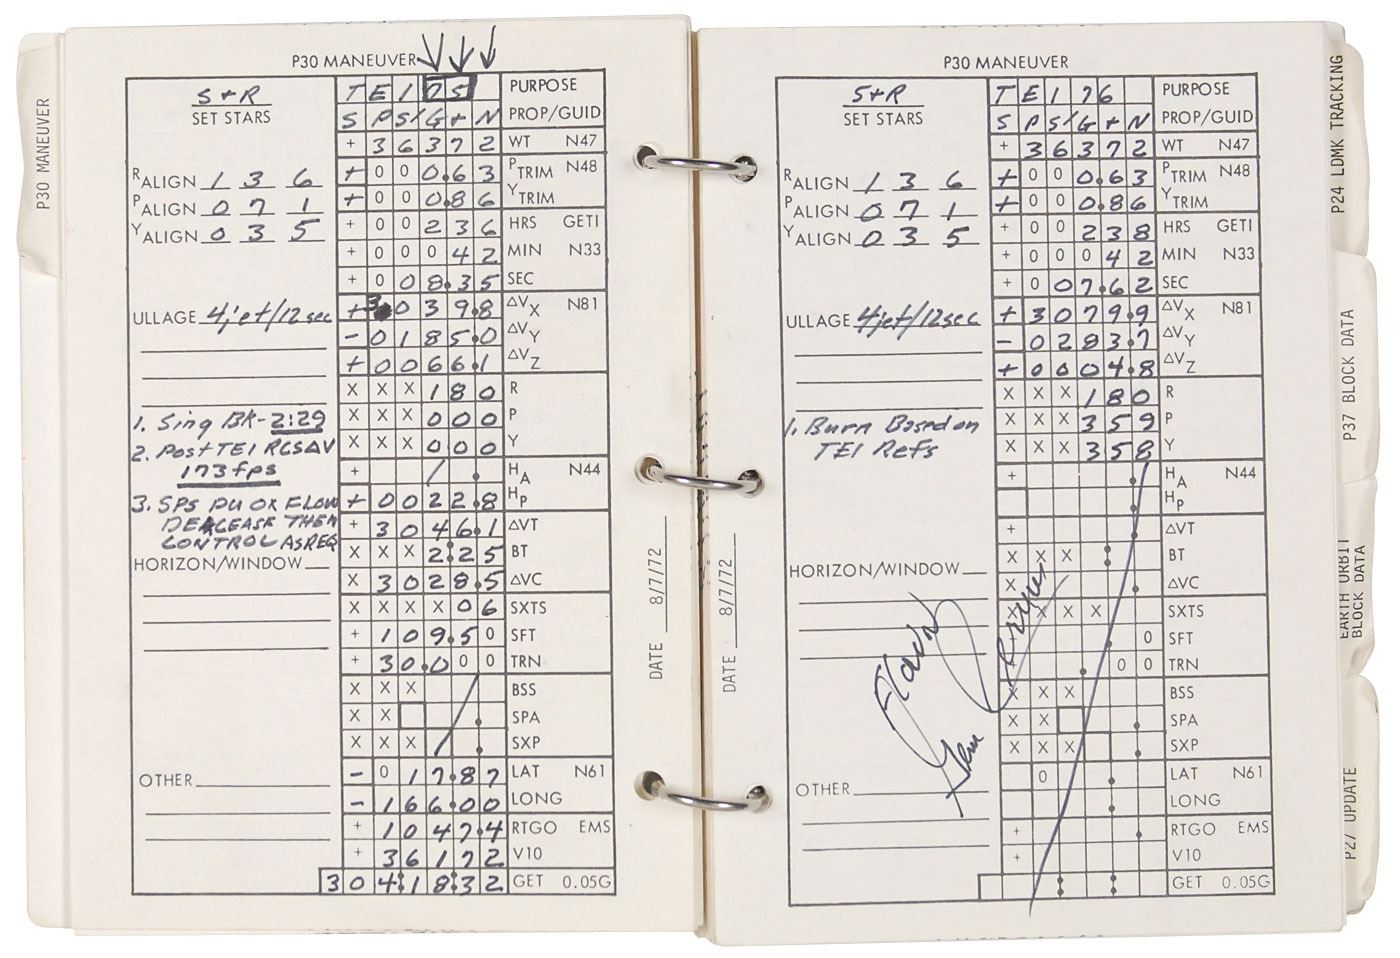 P30 MANEUVER
P30 MANEUVER
S+R
SET STARS
RALIGN 1 3 6
PALIGN 0 7 1
YALIGN 0 3 5
ULLAGE 4jet/12sec
1. Sing BK-2:29
2. Post TEI RCS ΔV
173 fps
3. SPS PU OX FLOW
DECREASE THEN
CONTROL AS REQ
HORIZON/WINDOW
OTHER
T E I 75 PURPOSE
S P S / G + N PROP/GUID
+ 3 6 3 7 2 WT N47
+ 0 0 0.6 3 PTRIM N48
+ 0 0 0.8 6 YTRIM
+ 0 0 2 3 6 HRS GETI
+ 0 0 0 4 2 MIN N33
+ 0 0 8.3 5 SEC
+ 3 0 3 9.8 ΔVX N81
- 0 1 8 5.0 ΔVY
+ 0 0 6 6.1 ΔVZ
X X X 1 8 0 R
X X X 0 0 0 P
X X X 0 0 0 Y
+ HA N44
+ 0 0 2 2.8 HP
+ 3 0 4 6.1 ΔVT
X X X 2:2 5 BT
X 3 0 2 8.5 ΔVC
X X X X 0 6 SXTS
+ 1 0 9.5 0 SFT
+ 3 0.0 0 0 TRN
X X X BSS
X X SPA
X X X SXP
- 0 1 7.8 7 LAT N61
- 1 6 6.0 0 LONG
+ 1 0 4 7.4 RTGO EMS
+ 3 6 1 7 2 V10
3 0 4:1 8:3 2 GET 0.05G
DATE 8/7/72
P30 MANEUVER
S+R
SET STARS
RALIGN 1 3 6
PALIGN 0 7 1
YALIGN 0 3 5
ULLAGE 4jet/12sec
1. Burn Based on
TEI Refs
HORIZON/WINDOW
OTHER
T E I 76 PURPOSE
S P S / G + N PROP/GUID
+ 3 6 3 7 2 WT N47
+ 0 0 0.6 3 PTRIM N48
+ 0 0 0.8 6 YTRIM
+ 0 0 2 3 8 HRS GETI
+ 0 0 0 4 2 MIN N33
+ 0 0 7.6 2 SEC
+ 3 0 7 9.9 ΔVX N81
- 0 2 8 3.7 ΔVY
+ 0 0 0 4.8 ΔVZ
X X X 1 8 0 R
X X X 3 5 9 P
X X X 3 5 8 Y
+ HA N44
HP
+ ΔVT
X X X BT
X ΔVC
X X X X SXTS
0 SFT
0 0 TRN
X X X BSS
X X SPA
X X X SXP
0 LAT N61
LONG
+ RTGO EMS
+ V10
GET 0.05G
DATE 8/7/72
P24 LDMK TRACKING
P37 BLOCK DATA
EARTH ORBIT
BLOCK DATA
P27 UPDATE